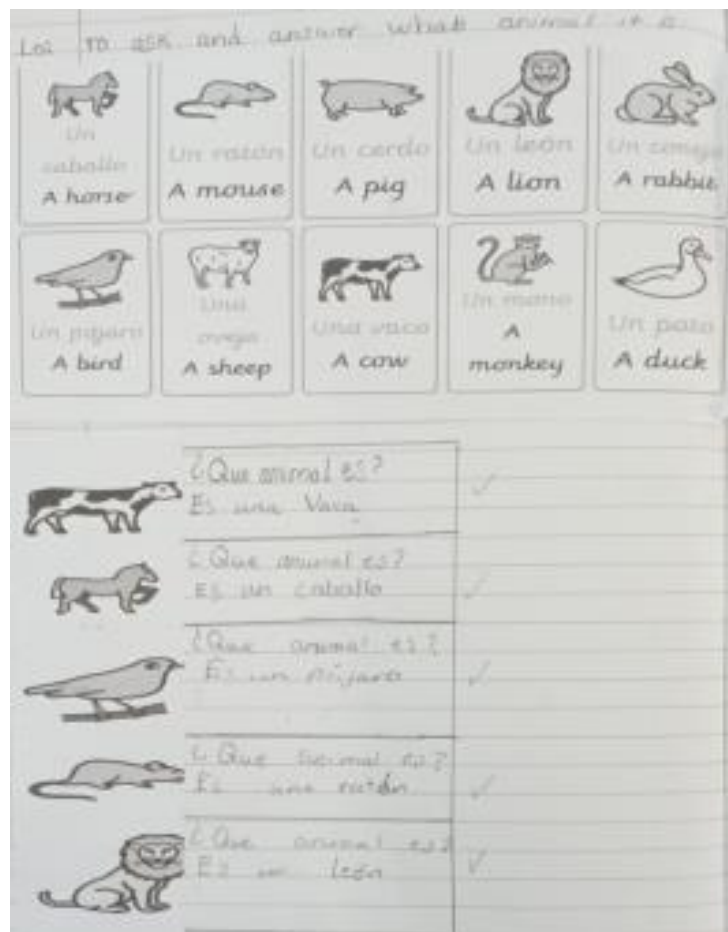 Lo: to ask and answer what animal it is
Un
caballo
A horse
Un ratón
A mouse
Un cerdo
A pig
Un león
A lion
Un conejo
A rabbit
Un pájaro
A bird
Una
oveja
A sheep
Una vaca
A cow
Un mono
A
monkey
Un pato
A duck
¿Que animal es?
Es una Vaca
¿Que animal es?
Es un caballo
¿Que animal es?
Es un pájaro
¿Que animal es?
Es ratón
¿Que animal es?
Es un león